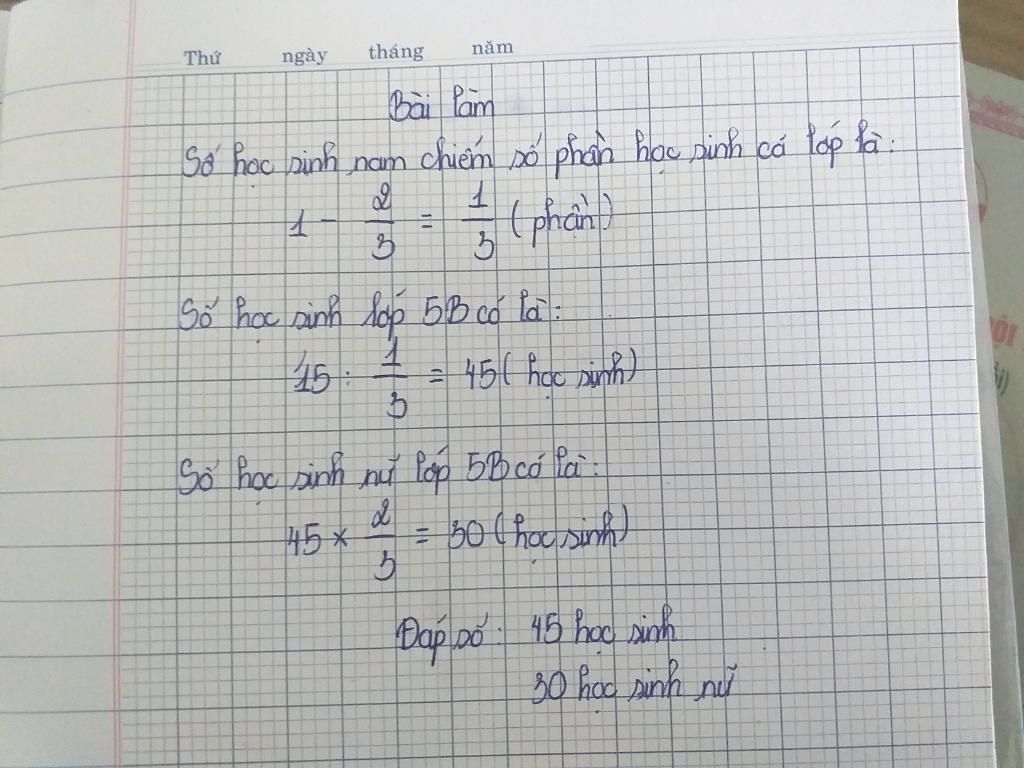 Thứ ngày tháng năm
Bài làm
Số học sinh nam chiếm số phần học sinh cả lớp là:
1 - 2/3 = 1/3 (phần)
Số học sinh lớp 5B có là:
15 : 1/3 = 45 (học sinh)
Số học sinh nữ lớp 5B có là:
45 × 2/3 = 30 (học sinh)
Đáp số: 45 học sinh
30 học sinh nữ